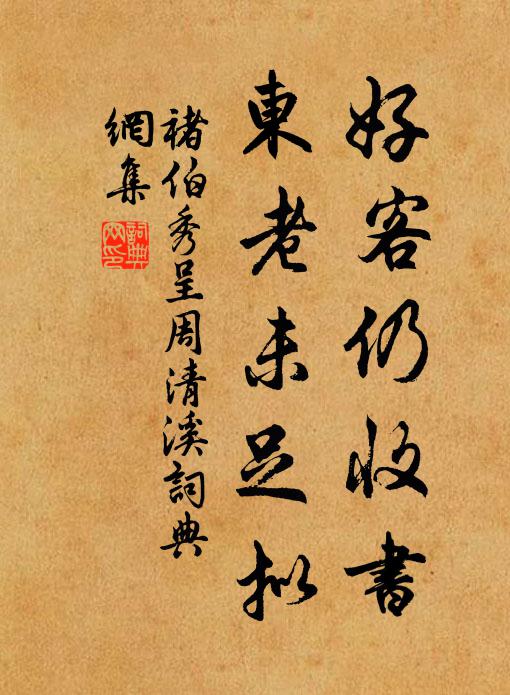 好客仍收書
東老未足拟
褚伯秀呈周清溪詞典
網集
詞典
网印